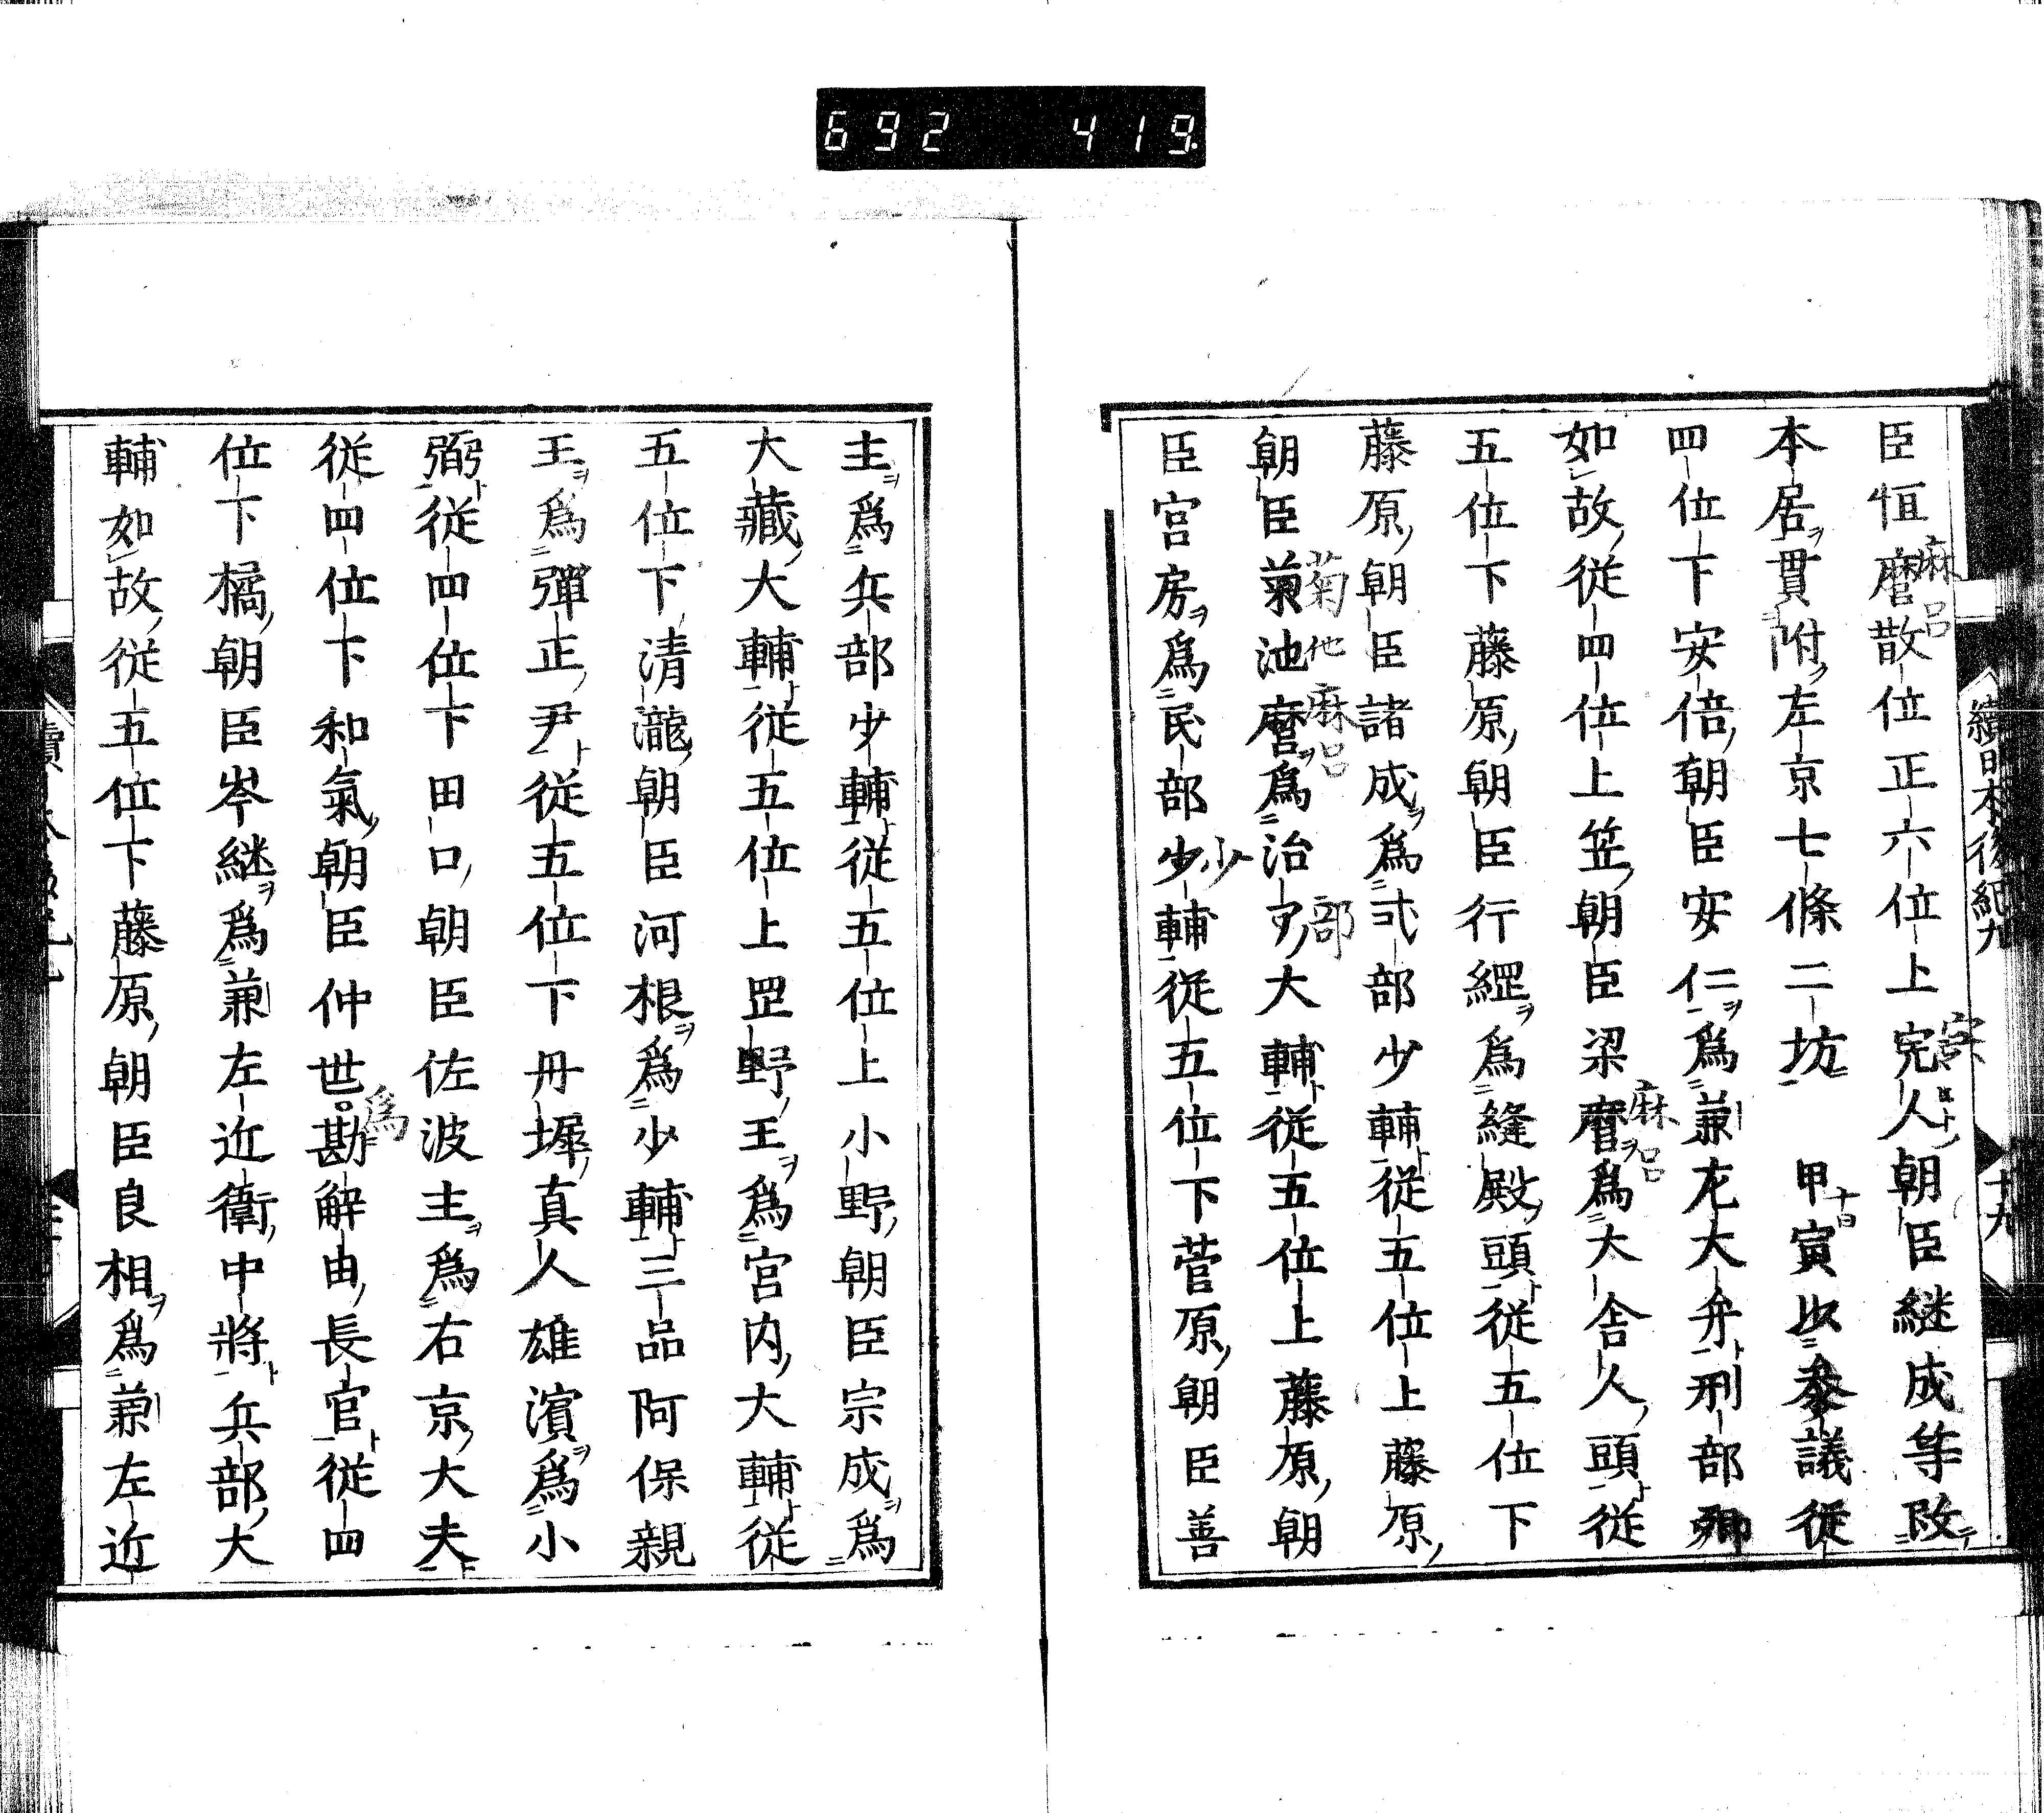 692 419
續日本後紀九 十九
臣恒麿散位正六位上宍人朝臣継成等改
麻呂
本居貫附左京七條二坊 甲寅以參議從
十日
四位下安倍朝臣安仁爲兼左大弁刑部卿
如故從四位上笠朝臣梁麿爲大舎人頭從
麻呂
五位下藤原朝臣行縄爲縫殿頭從五位下
藤原朝臣諸成爲式部少輔從五位上藤原
朝臣菊池麿爲治卩大輔從五位上藤原朝
菊池麻呂 部
臣宮房爲民部少輔從五位下菅原朝臣善
少
主爲兵部少輔從五位上小野朝臣宗成爲
大藏大輔從五位上岡野王爲宮内大輔從
五位下清瀧朝臣河根爲少輔三品阿保親
王爲彈正尹從五位下丹墀真人雄濱爲小
弼從四位下田口朝臣佐波主爲右京大夫
從四位下和氣朝臣仲世勘解由長官從四
爲
位下橘朝臣岑継爲兼左近衛中將兵部大
輔如故從五位下藤原朝臣良相爲兼左近